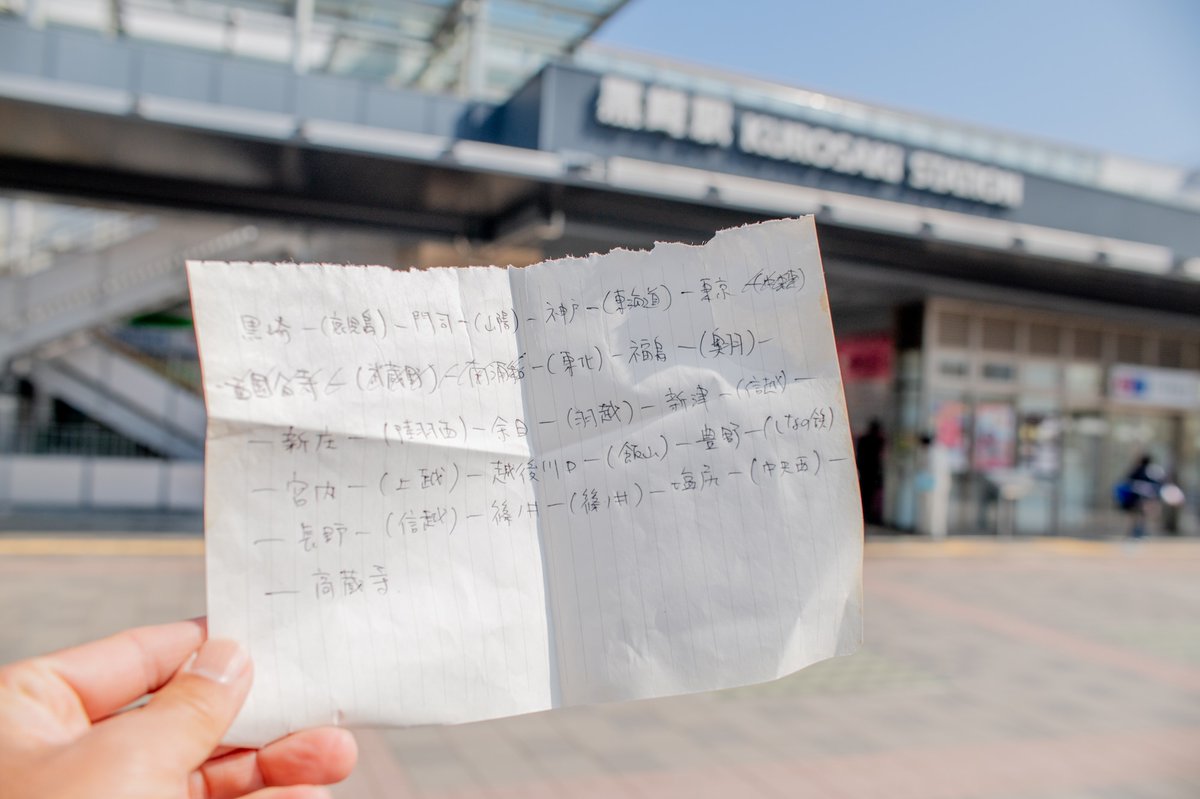 黒崎駅 KUROSAKI STATION
黒崎 ― (鹿児島) ― 門司 ― (山陽) ― 神戸 ― (東海道) ― 東京
― (武蔵野) ― 南浦和 ― (東北) ― 福島 ― (奥月) ―
― 新庄 ― (陸羽西) ― 余目 ― (羽越) ― 新津 ― (信越) ―
― 宮内 ― (上越) ― 越後川口 ― (飯山) ― 豊野 ― (しなの鉄)
― 長野 ― (信越) ― 篠ノ井 ― (篠ノ井) ― 塩尻 ― (中央西) ―
― 高蔵寺